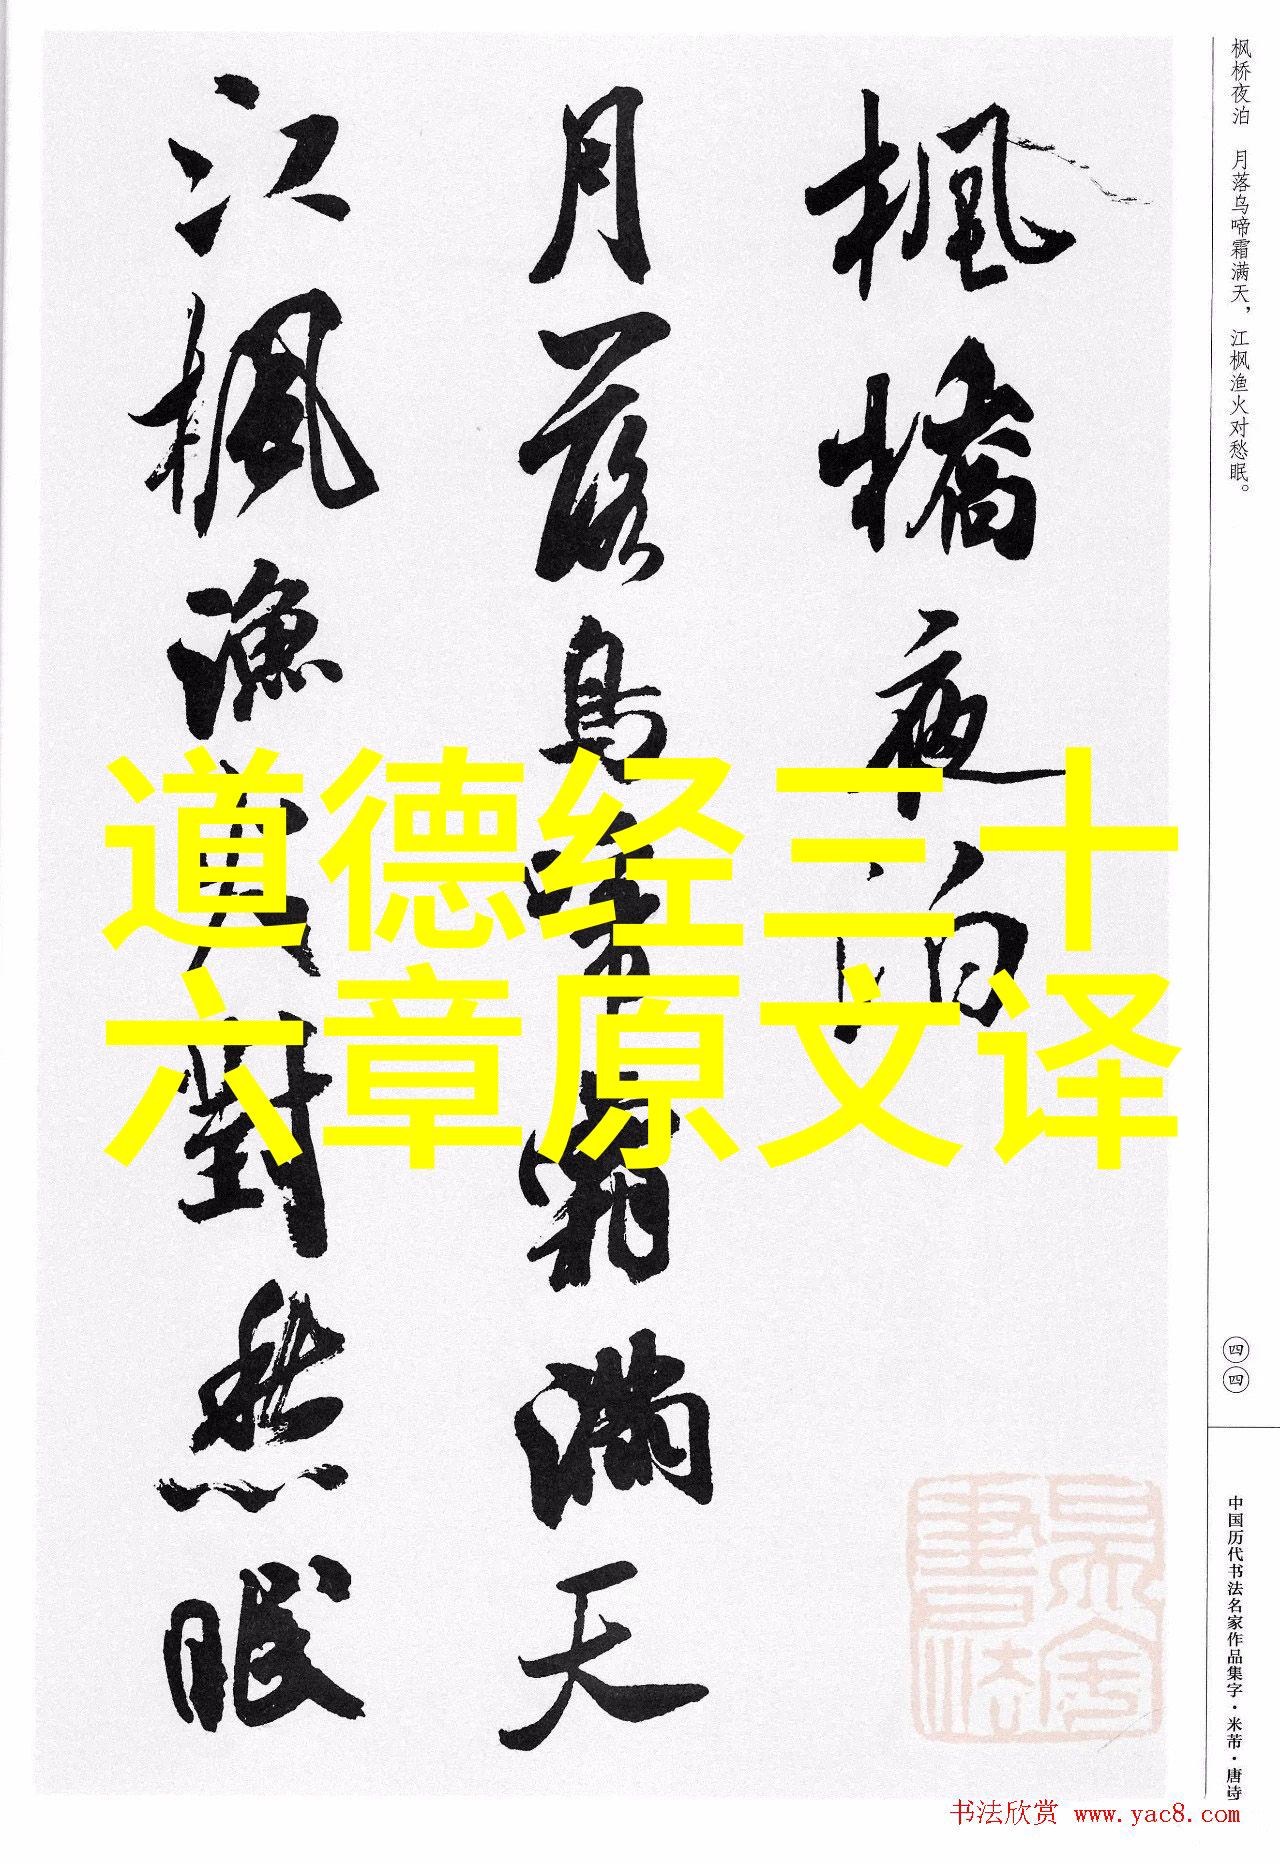 枫桥夜泊 月落乌啼霜满天，江枫渔火对愁眠。
楓橋夜泊
月落烏啼霜滿天
江楓漁火對愁眠
道德经三十
六章原文译
四四
中国历代书法名家作品集字·米芾·唐诗
书法欣赏 www.yac8.com